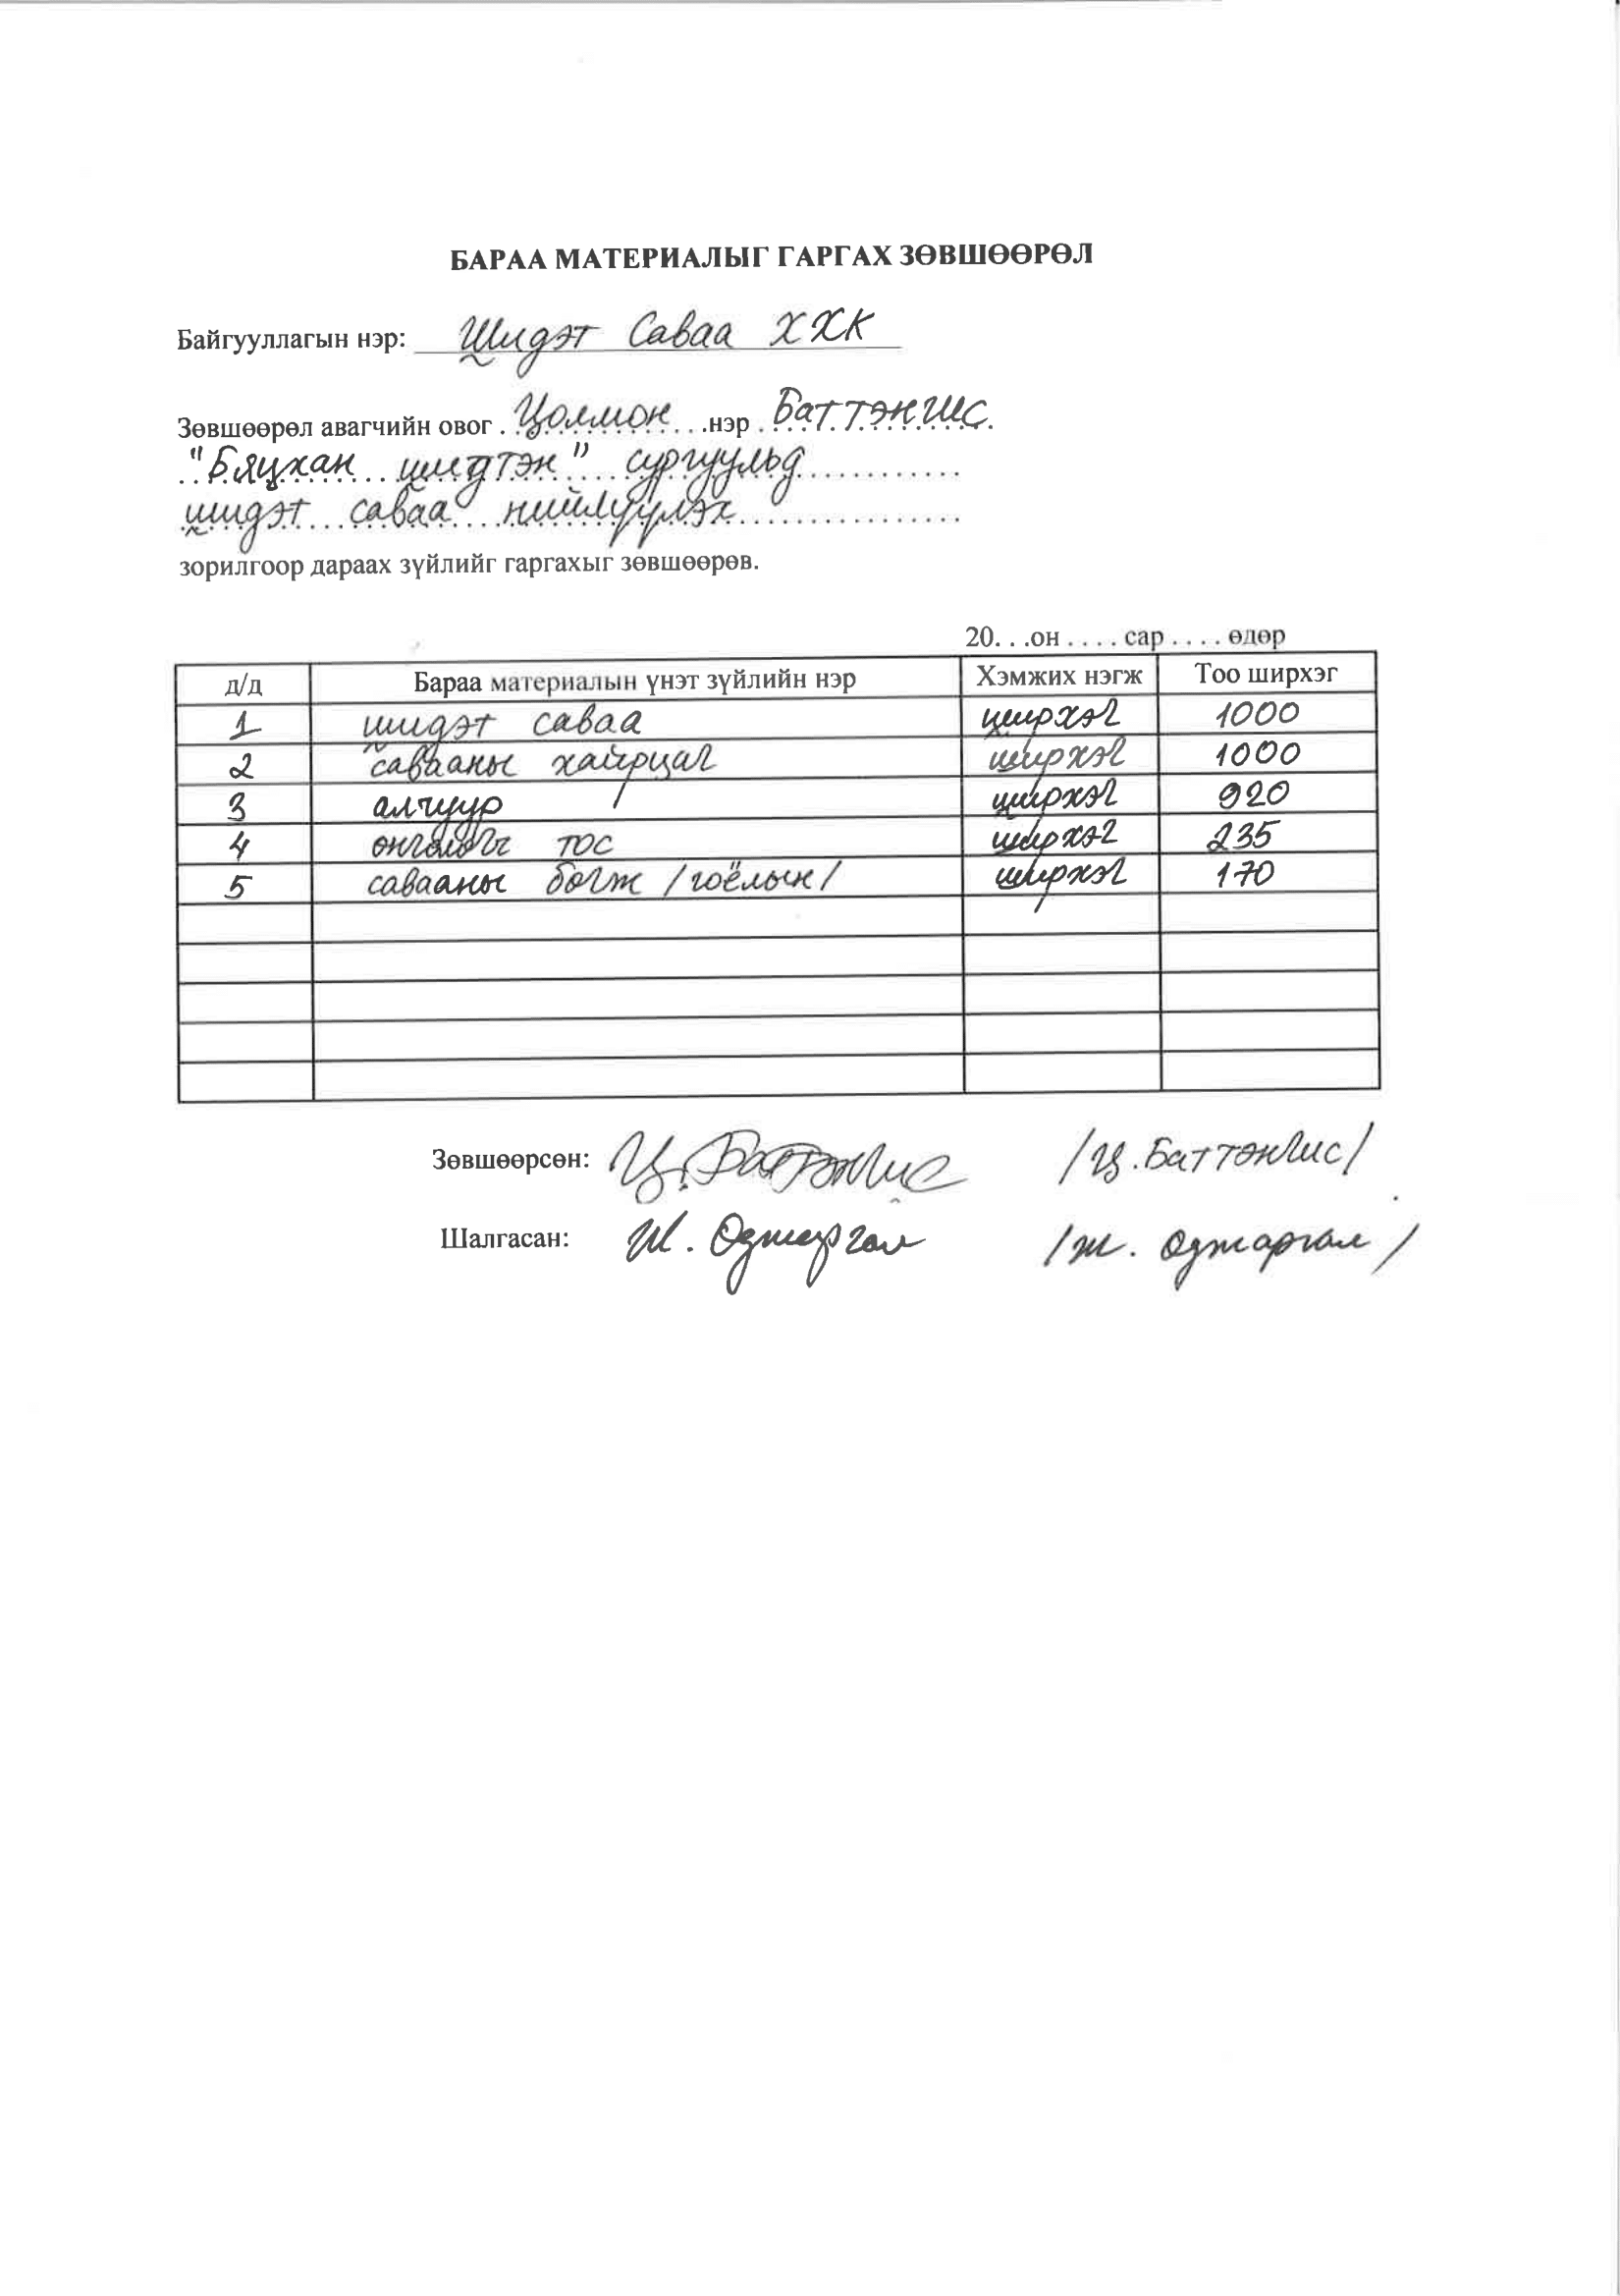 БАРАА МАТЕРИАЛЫГ ГАРГАХ ЗӨВШӨӨРӨЛ
Байгууллагын нэр: Шидэт Саваа ХХК
Зөвшөөрөл авагчийн овог . Цолмон . .нэр . Баттэнгис.
"Бяцхан шидтэн" сургуульд
шидэт саваа нийлүүлэх
зорилгоор дараах зүйлийг гаргахыг зөвшөөрөв.
20. . .он . . . . сар . . . . өдөр
д/д Бараа материалын үнэт зүйлийн нэр Хэмжих нэгж Тоо ширхэг
1 шидэт саваа ширхэг 1000
2 савааны хайрцаг ширхэг 1000
3 алчуур ширхэг 920
4 өнгөлөгч тос ширхэг 235
5 савааны бөгж /гоёлын/ ширхэг 170
Зөвшөөрсөн: Ц. Баттэнгис /Ц. Баттэнгис/
Шалгасан: Ж. Оджаргал /Ж. Оджаргал/